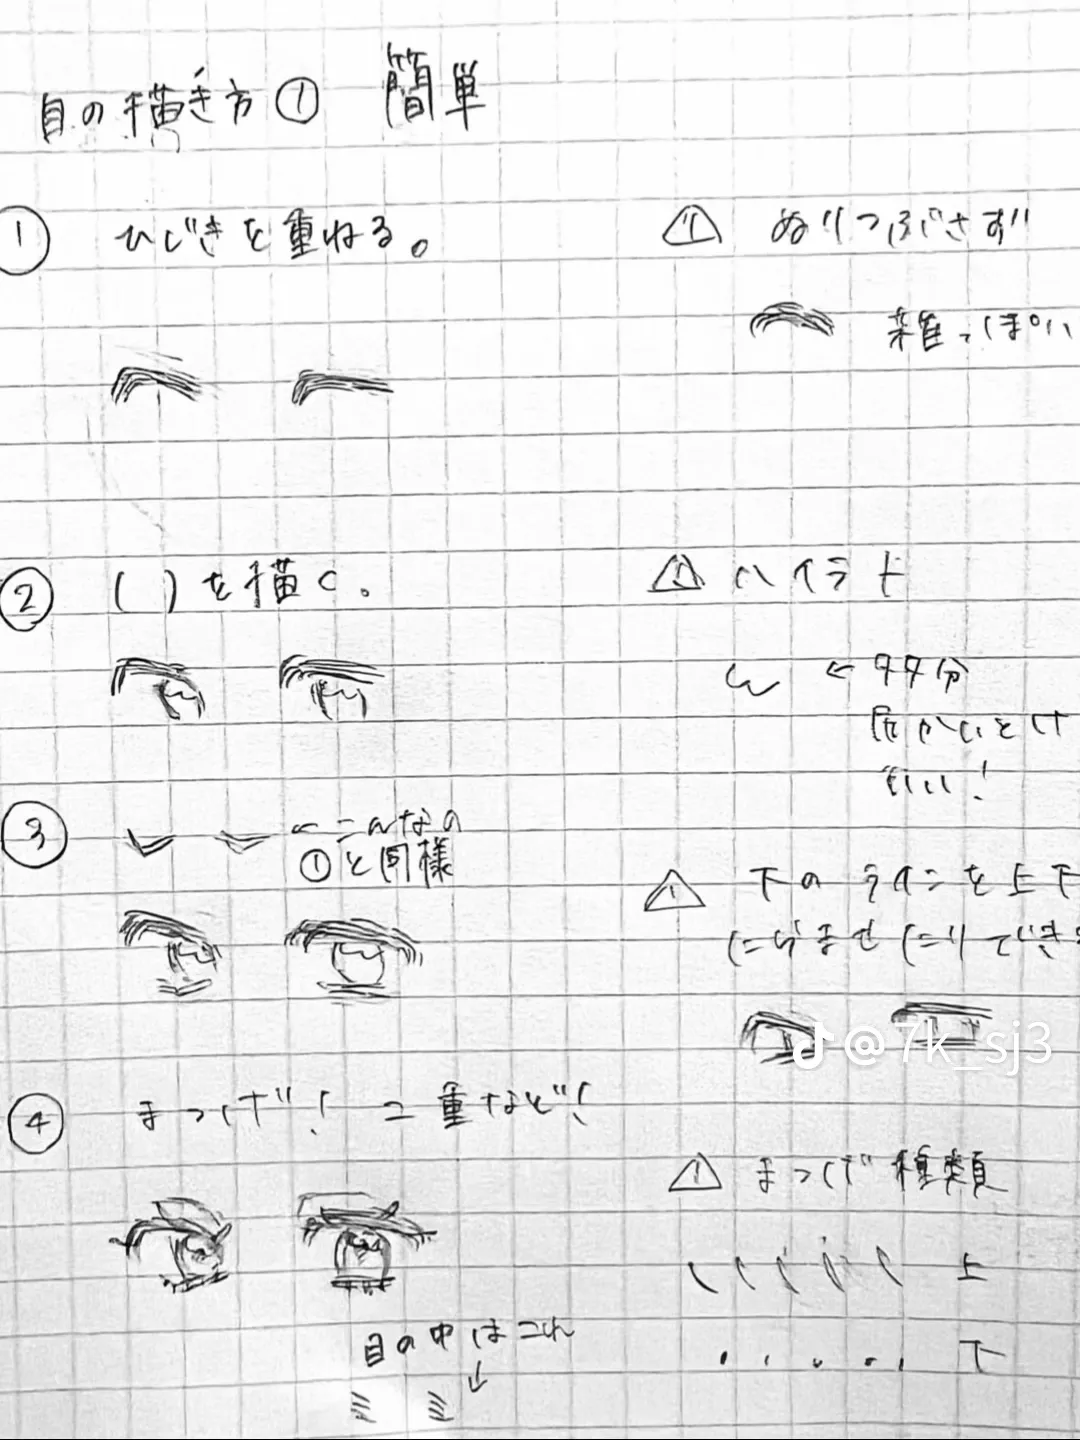 目の描き方① 簡単
① ひじきを重ねる。
⚠ ぬりつぶさず!!
雑っぽい
② ( )を描く。
⚠ ハイラト
← タタ分
いい!
③ ←こんなの
①と同様
⚠ 下のラインを上下
@7k_sj3
④ まつげ! 二重など!
⚠ まつげ種類
上
目の中はこれ
下
↓